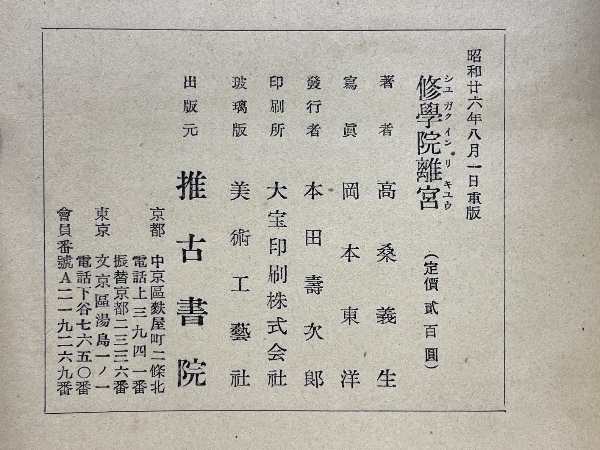 昭和廿六年八月一日重版
修學院離宮
シユガクインリキユウ
(定價貳百圓)
著者 高桑義生
寫眞 岡本東洋
發行者 本田壽次郎
印刷所 大宝印刷株式会社
玻璃版 美術工藝社
出版元 推古書院
京都 中京區麩屋町二條北
電話上三九四一番
振替京都二三三六番
東京 文京區湯島一ノ一
電話下谷七六五〇番
會員番號A二一九二六九番